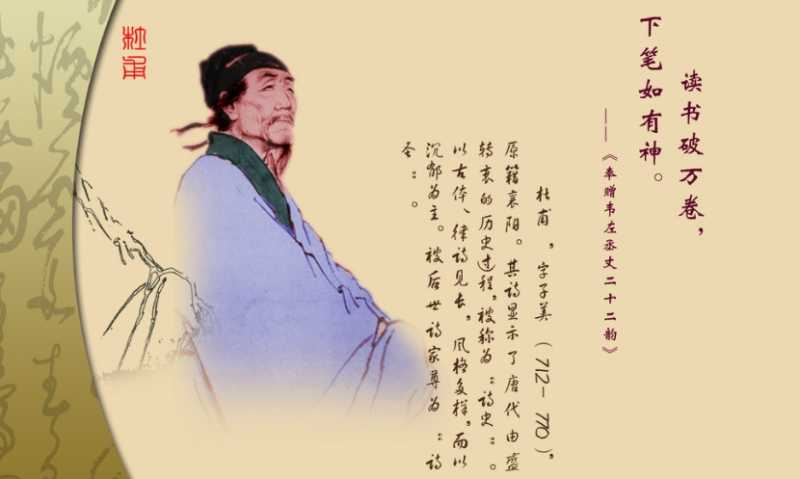 读书破万卷，
下笔如有神。
——《奉赠韦左丞丈二十二韵》
杜甫，字子美（712-770），
原籍襄阳。其诗显示了唐代由盛
转衰的历史过程，被称为“诗史”。
以古体、律诗见长，风格多样，而以
沉郁为主。被后世诗家尊为“诗
圣”。
杜甫